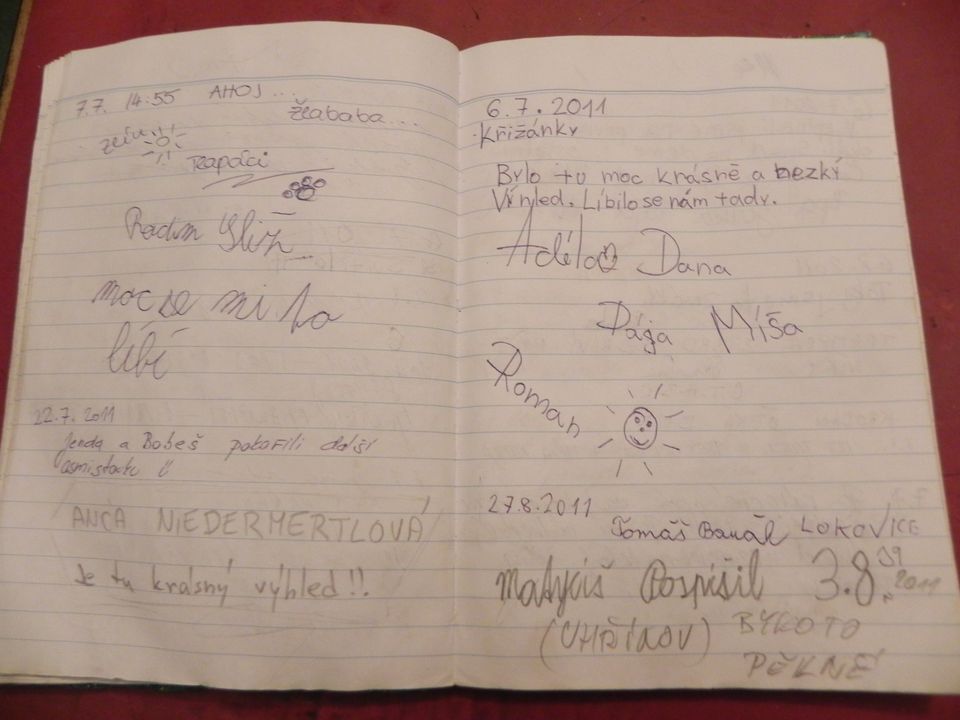 7.7. 14:55 AHOJ...
Žlababa...
Trapáci
Radim
moc se mi to
líbí
22.7.2011
Jenda a Bobeš pokořili další
osmistovku
ANČA NIEDERMERTLOVÁ
Je tu krásný výhled!!.
6.7.2011
Křižánky
Bylo tu moc krásně a hezký
Výhled. Líbilo se nám tady.
Adéla Dana
Dája Míša
Roman
27.8.2011
Tomáš LOKOVICE
Matyáš Pospíšil 3.8. 2011
(UHŘÍNOV) BYLO TO
PĚKNÉ